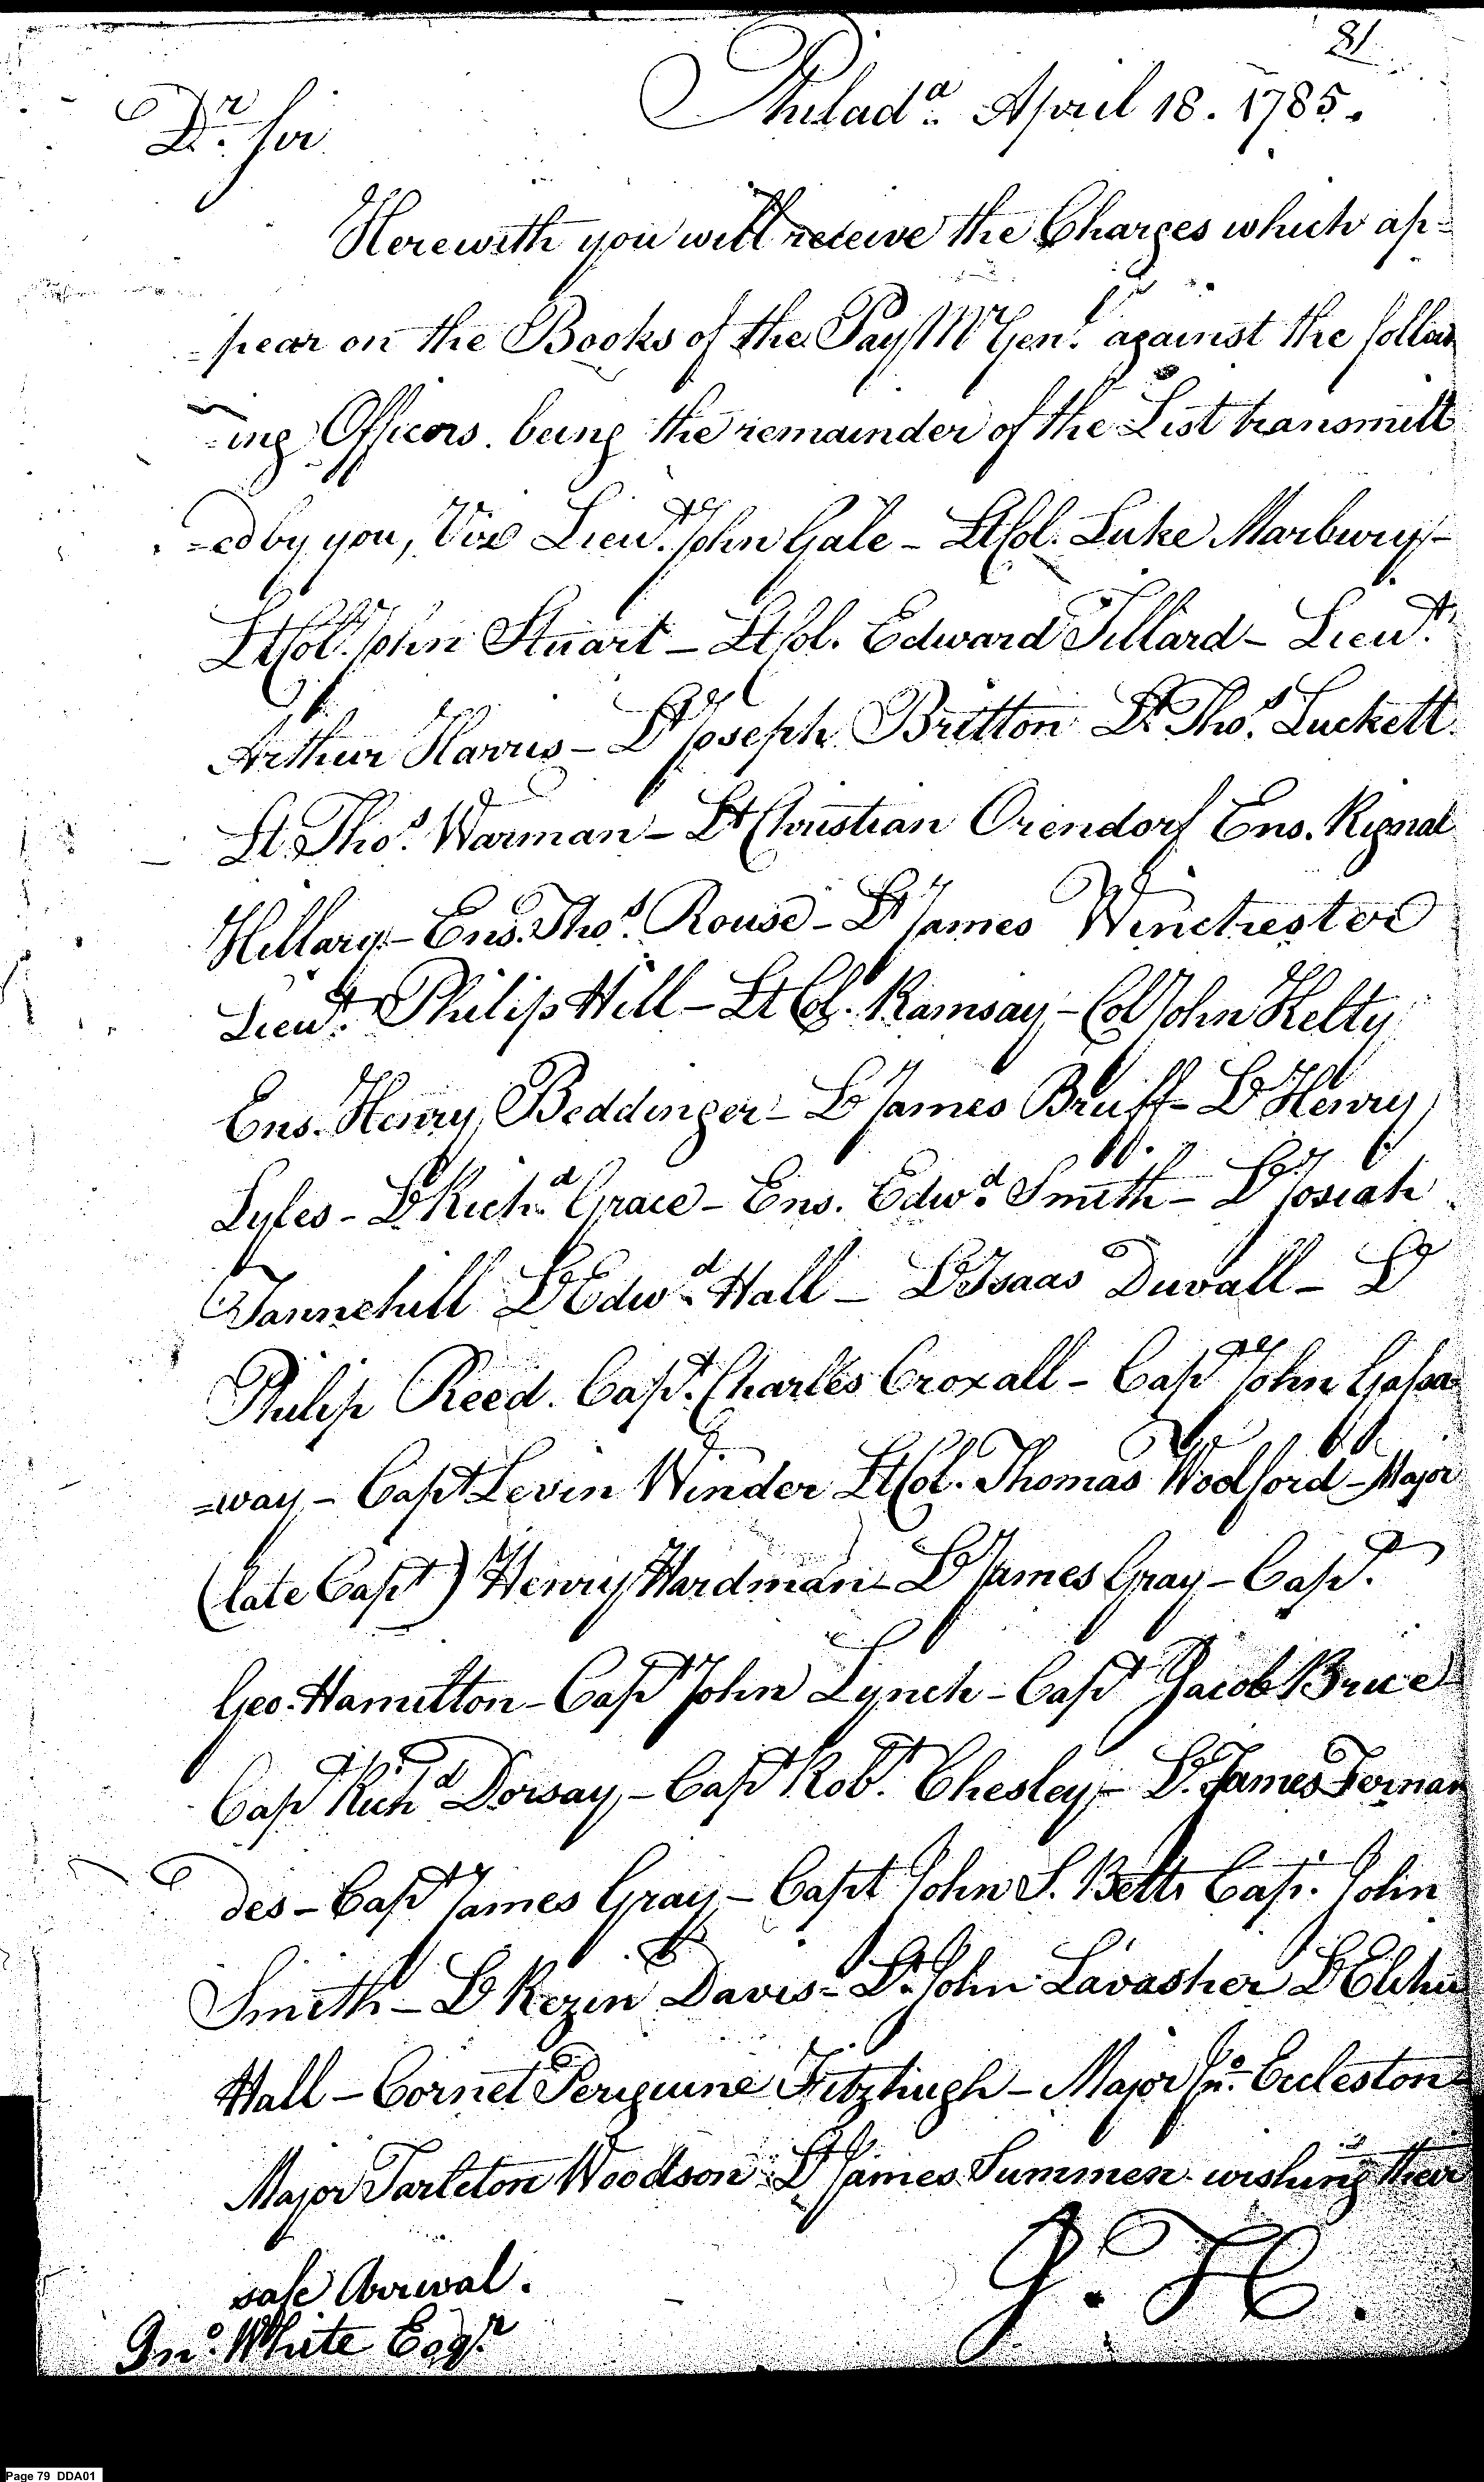 81
Philadª. April 18. 1785.
Dr. Sir
Herewith you will receive the Charges which ap=
=pear on the Books of the Pay Mr Genl. against the follow
=ing Officers. being the remainder of the List transmitt
=ed by you, Viz Lieut. John Gale - Lt Col. Luke Marbury -
Lt Col. John Stuart - Lt Col. Edward Tillard - Lieut.
Arthur Harris - Lt Joseph Britton Lt. Thos. Luckett.
Lt. Thos. Warman - Lt Christian Orendorf Ens. Rignal
Hillary - Ens. Thos. Rouse - Lt James Winchester
Lieut. Philip Hill - Lt Col. Ramsay - Col John Kelty
Ens. Henry Beddinger - Lt James Bruff - Lt Henry
Lyles - Lt Richd. Grace - Ens. Edwd. Smith - Lt Josiah
Tannehill Lt Edwd. Hall - Lt Isaas Duvall - Lt
Philip Reed. Capt. Charles Croxall - Capt John Gassa
=way - Capt Levin Winder Lt Col. Thomas Woodford - Major
(late Capt) Henry Hardman - Lt James Gray - Capt.
Geo. Hamilton - Capt John Lynch - Capt Jacob Brice
Capt Richd Dorsay - Capt Robt. Chesley - Lt. James Fernan
des - Capt James Gray - Capt John S. Belts Cap. John
Smith - Lt Rezin Davis - Lt. John Lavasher Lt Elihu
Hall - Cornet Periguine Fitzhugh - Major Jno. Eccleston -
Major Tarleton Woodson Lt James Summen wishing their
safe Arrival.
J. H.
Jno. White Esqr.
Page 79 DDA01